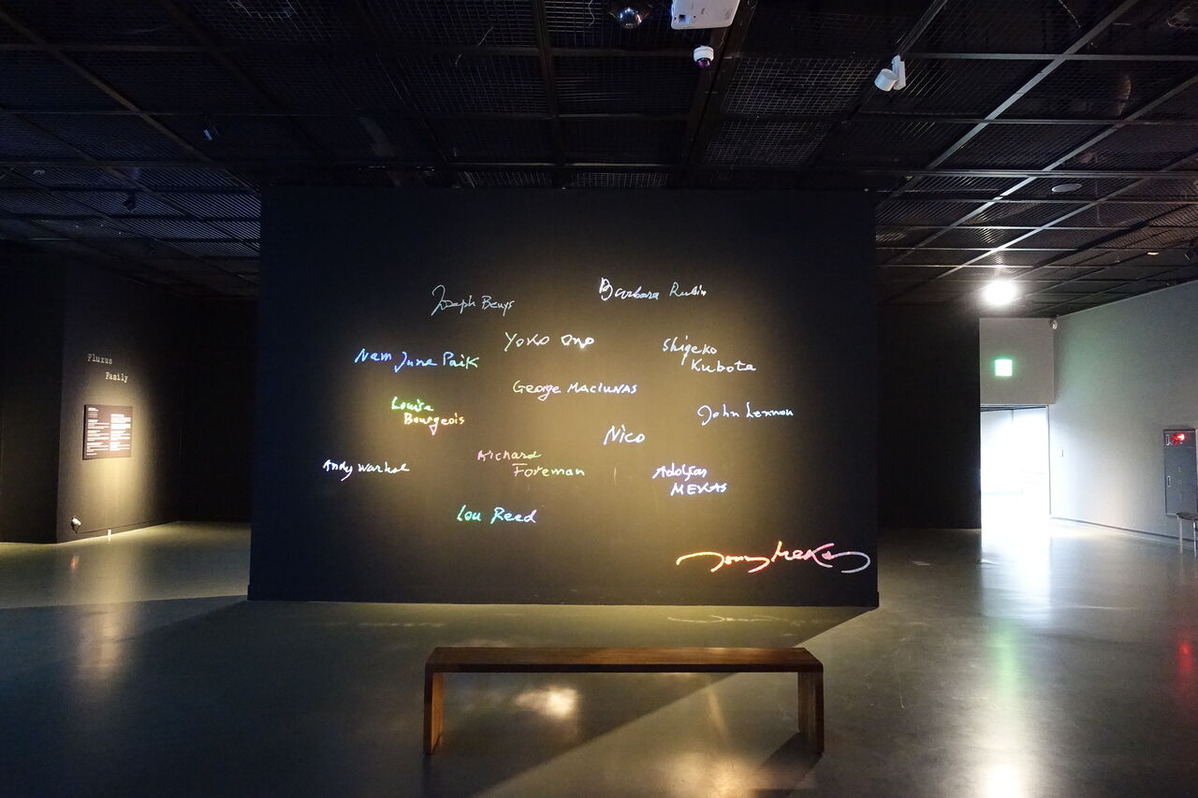 Fluxus
Family
Joseph Beuys
Barbara Rubin
Yoko Ono
Shigeko
Kubota
Nam June Paik
George MACIUNAS
Louise
Bourgeois
John Lennon
Nico
Andy Warhol
Richard
Foreman
Adolfas
MEKAS
Lou Reed
Jonas Mekas